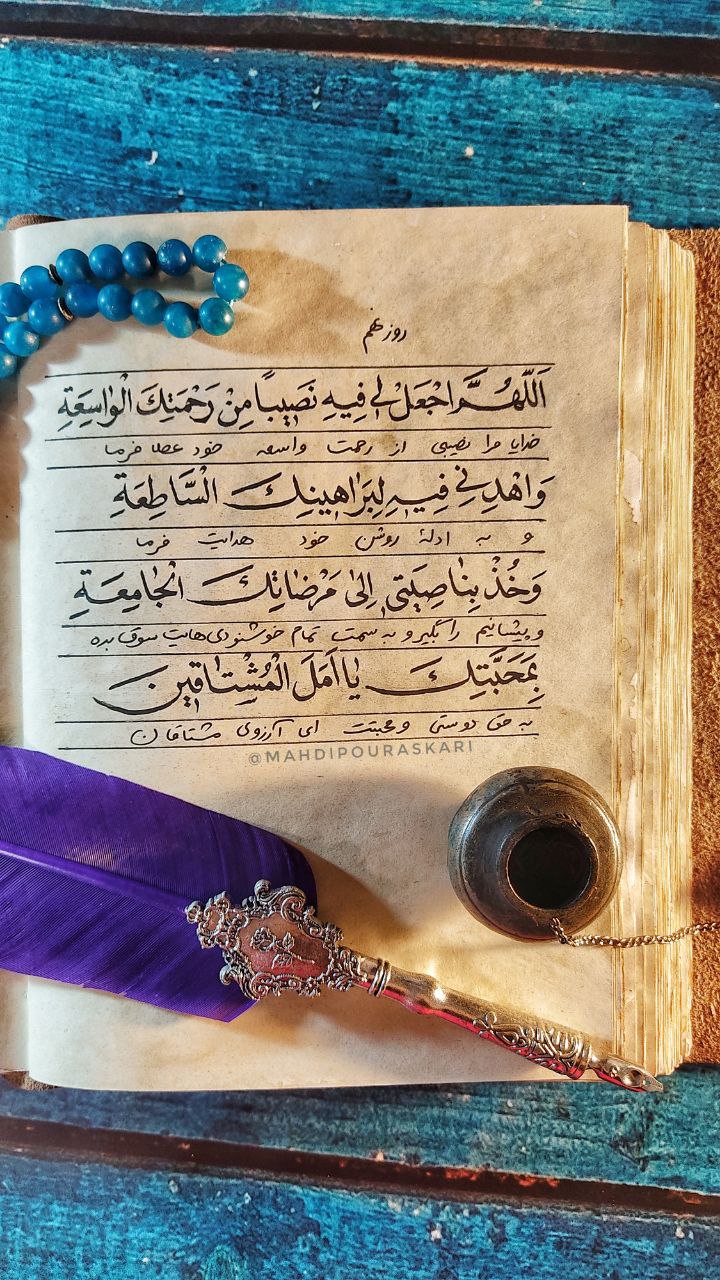 روز نهم
اَللّٰهُمَّ اجْعَلْ لی فِیهِ نَصِیباً مِنْ رَحْمَتِكَ الْوٰاسِعَةِ
خدایا مرا نصیبی از رحمت واسعه خود عطا فرما
وَاهْدِنِی فِیهِ لِبَرٰاهِینِكَ السّٰاطِعَةِ
و به ادلۀ روشن خود هدایت فرما
وَخُذْ بِنٰاصِیَتی اِلیٰ مَرْضٰاتِكَ الْجٰامِعَةِ
و پیشانیم را بگیر و به سمت تمام خوشنودی‌هایت سوق بده
بِمَحَبَّتِكَ یٰا اَمَلَ الْمُشْتٰاقِینَ
به حق دوستی و محبتت ای آرزوی مشتاقان
@MAHDIPOURASKARI